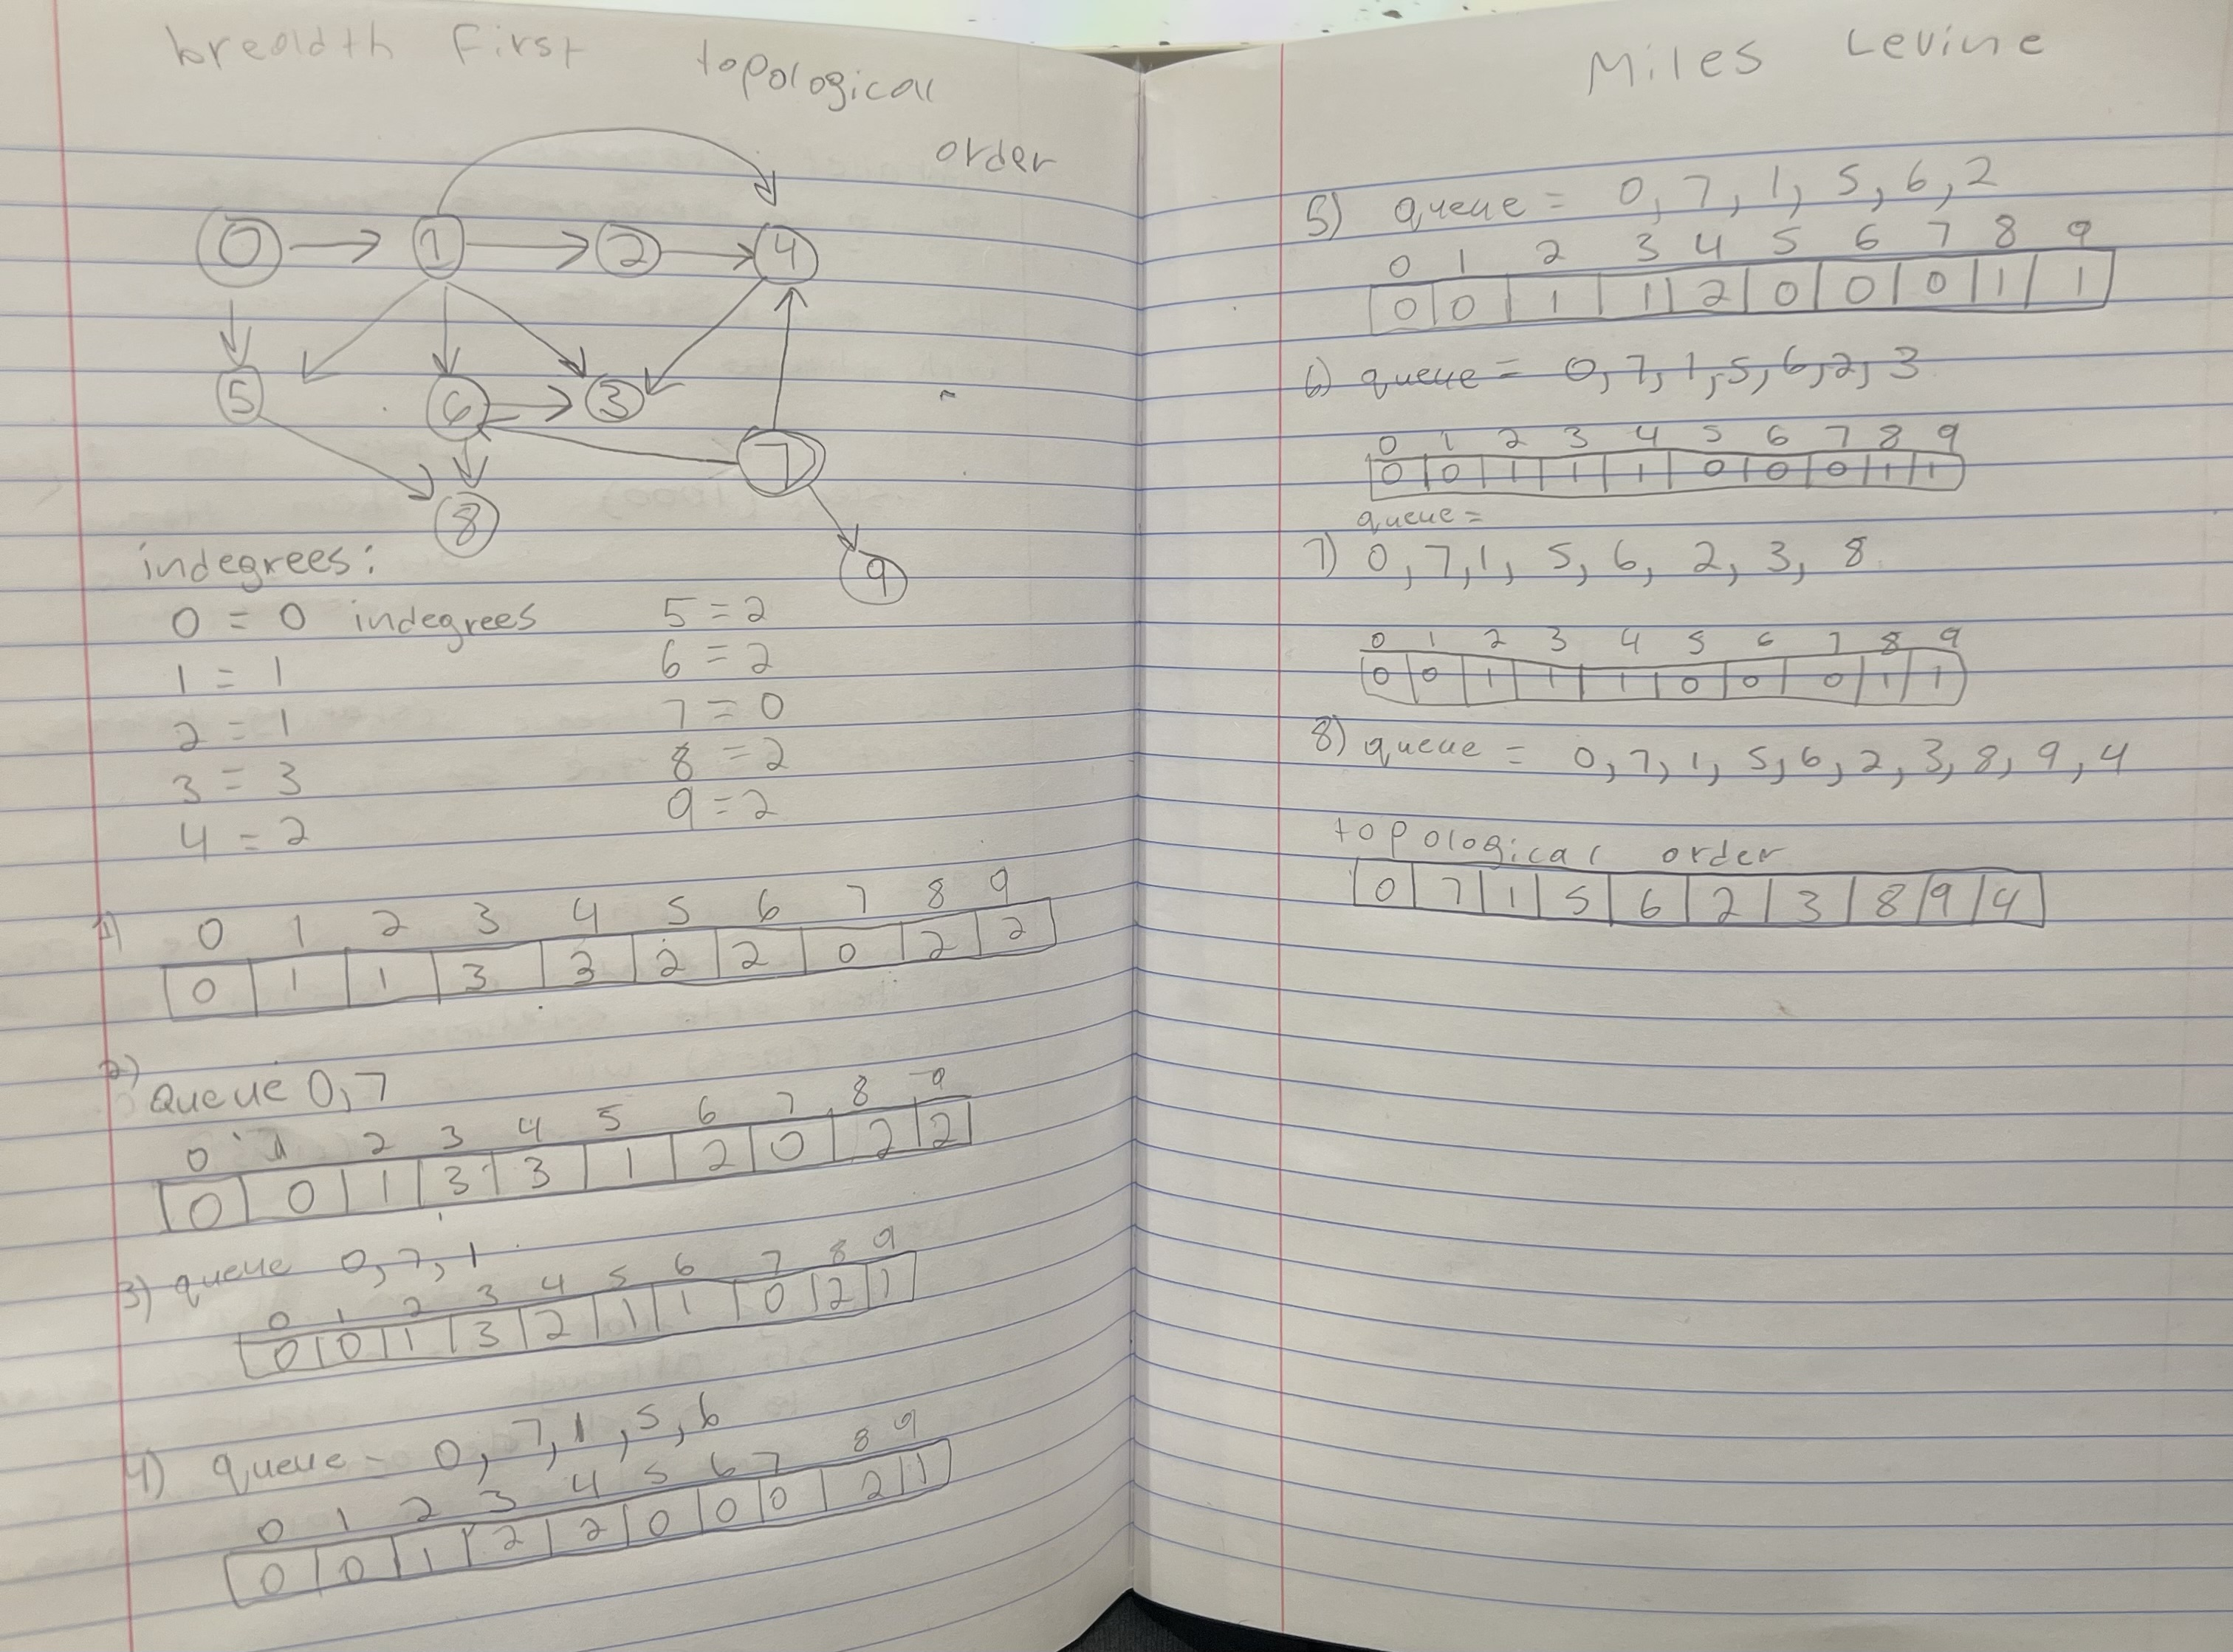 breadth first topological
order
0 1 2 4
5 6 3
7
8
9
indegrees:
0 = 0 indegrees 5 = 2
1 = 1 6 = 2
2 = 1 7 = 0
3 = 3 8 = 2
4 = 2 9 = 2
1) 0 1 2 3 4 5 6 7 8 9
0 1 1 3 3 2 2 0 2 2
2)
Queue 0, 7
0 1 2 3 4 5 6 7 8 9
0 0 1 3 3 1 2 0 2 2
3) queue 0, 7, 1
0 1 2 3 4 5 6 7 8 9
0 0 1 3 2 1 1 0 2 1
4) queue - 0, 7, 1, 5, 6
0 1 2 3 4 5 6 7 8 9
0 0 1 2 2 0 0 0 2 1
Miles Levine
5) queue = 0, 7, 1, 5, 6, 2
0 1 2 3 4 5 6 7 8 9
0 0 1 1 2 0 0 0 1 1
6) queue = 0, 7, 1, 5, 6, 2, 3
0 1 2 3 4 5 6 7 8 9
0 0 1 1 1 0 0 0 1 1
queue =
7) 0, 7, 1, 5, 6, 2, 3, 8
0 1 2 3 4 5 6 7 8 9
0 0 1 1 1 0 0 0 1 1
8) queue = 0, 7, 1, 5, 6, 2, 3, 8, 9, 4
topological order
0 7 1 5 6 2 3 8 9 4